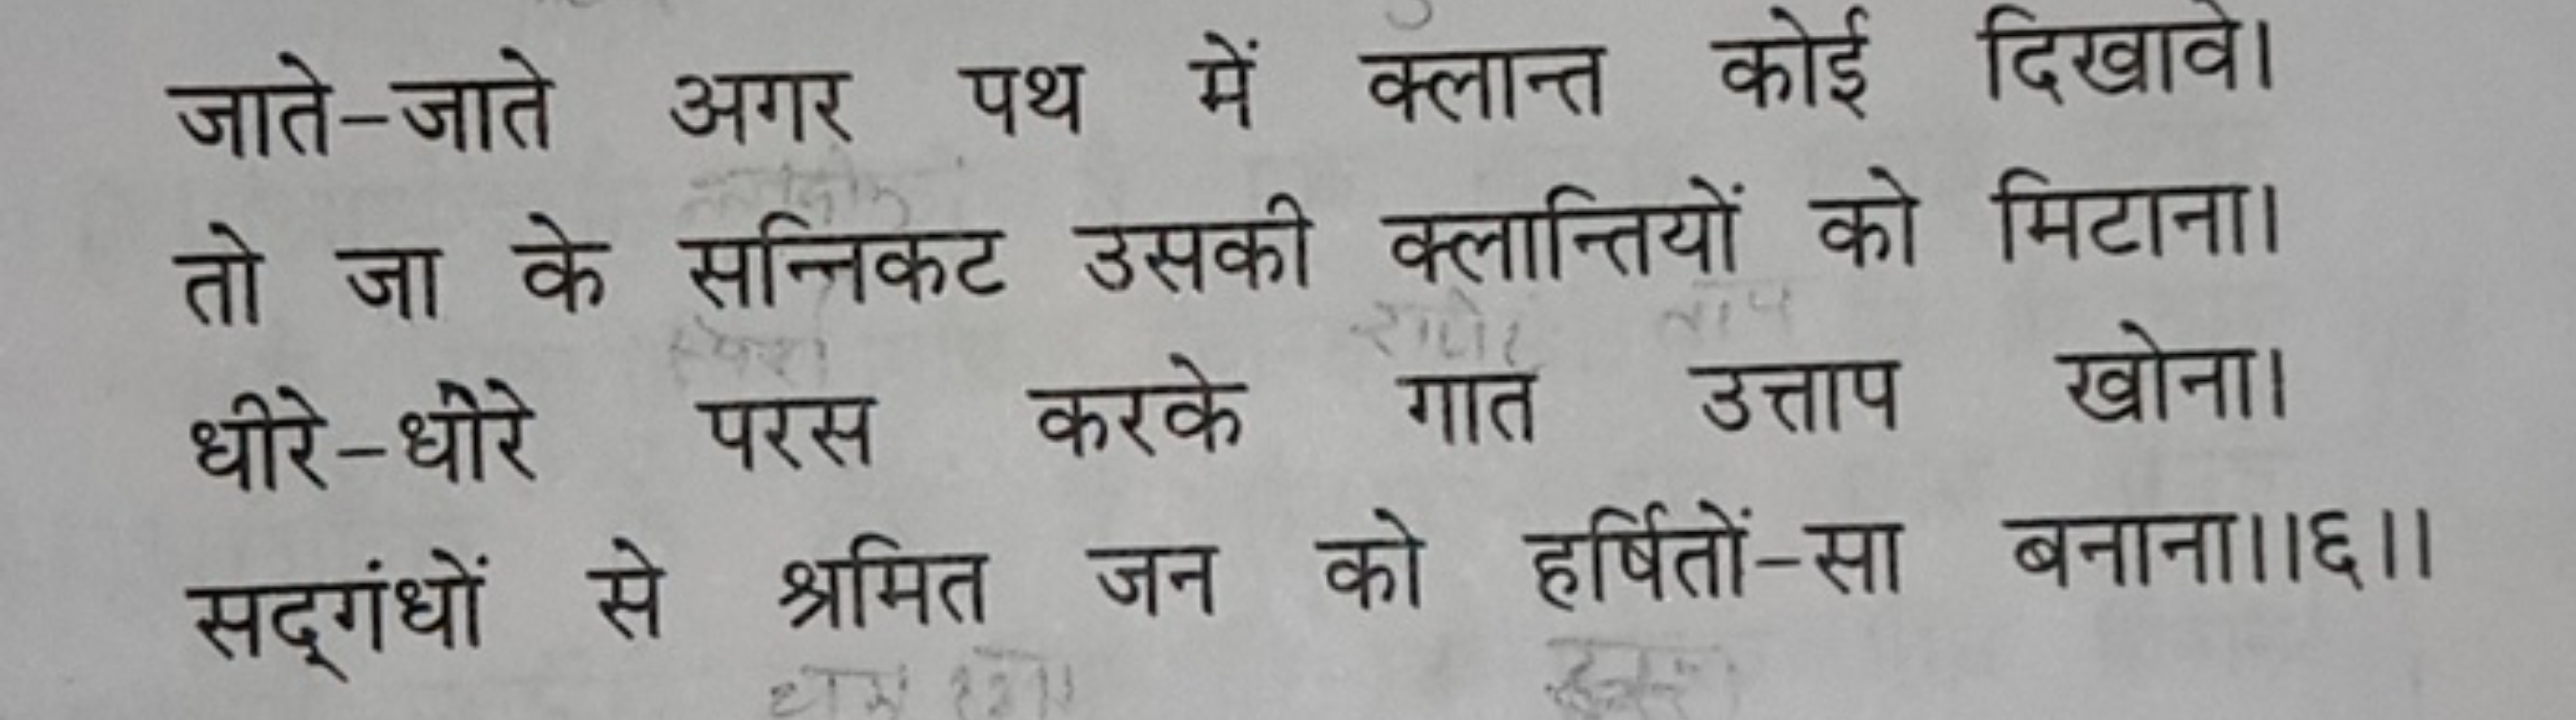 जाते-जाते अगर पथ में क्लान्त कोई दिखावे।
तो जा के सन्निकट उसकी क्लान्तियों को मिटाना।
धीरे-धीरे परस करके गात उत्ताप खोना।
सद्‌गंधों से श्रमित जन को हर्षितों-सा बनाना।।६।।